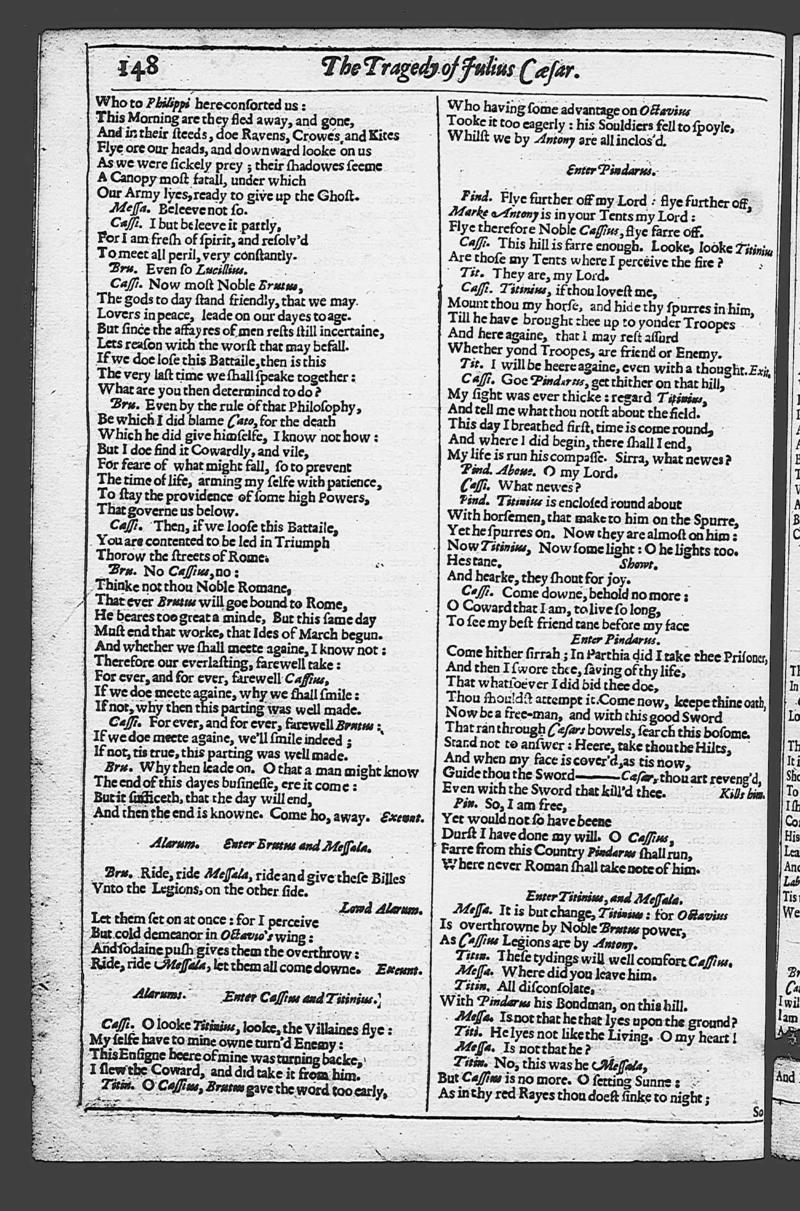 148 The Tragedy of Julius Cæſar.
Who to Philippi here conſorted us:
This Morning are they fled away, and gone,
And in their ſteeds, doe Ravens, Crowes, and Kites
Flye ore our heads, and downward looke on us
As we were ſickely prey; their ſhadowes ſeeme
A Canopy moſt fatall, under which
Our Army lyes, ready to give up the Ghoſt.
Meſſa. Beleeve not ſo.
Caſſi. I but beleeve it partly,
For I am freſh of ſpirit, and reſolv'd
To meet all peril, very conſtantly.
Bru. Even ſo Lucillius.
Caſſi. Now moſt Noble Brutus,
The gods to day ſtand friendly, that we may
Lovers in peace, leade on our dayes to age.
But ſince the affayres of men reſts ſtill incertaine,
Lets reaſon with the worſt that may befall.
If we doe loſe this Battaile, then is this
The very laſt time we ſhall ſpeake together:
What are you then determined to do?
Bru. Even by the rule of that Philoſophy,
Be which I did blame Cato, for the death
Which he did give himſelfe, I know not how:
But I doe find it Cowardly, and vile,
For feare of what might fall, ſo to prevent
The time of life, arming my ſelfe with patience,
To ſtay the providence of ſome high Powers,
That governe us below.
Caſſi. Then, if we looſe this Battaile,
You are contented to be led in Triumph
Thorow the ſtreets of Rome.
Bru. No Caſſius, no:
Thinke not thou Noble Romane,
That ever Brutus will goe bound to Rome,
He beares too great a minde, But this ſame day
Muſt end that worke, that Ides of March begun.
And whether we ſhall meete againe, I know not:
Therefore our everlaſting, farewell take:
For ever, and for ever, farewell Caſſius,
If we doe meete againe, why we ſhall ſmile:
If not, why then this parting was well made.
Caſſi. For ever, and for ever, farewell Brutus:
If we doe meete againe, we'll ſmile indeed;
If not, tis true, this parting was well made.
Bru. Why then leade on. O that a man might know
The end of this dayes buſineſſe, ere it come:
But it ſufficeth, that the day will end,
And then the end is knowne. Come ho, away. Exeunt.
Alarum. Enter Brutus and Meſſala.
Bru. Ride, ride Meſſala, ride and give theſe Billes
Vnto the Legions, on the other ſide.
Lowd Alarum.
Let them ſet on at once: for I perceive
But cold demeanor in Octavio's wing:
And ſodaine puſh gives them the overthrow:
Ride, ride Meſſala, let them all come downe. Exeunt.
Alarums. Enter Caſſius and Titinius.
Caſſi. O looke Titinius, looke, the Villaines flye:
My ſelfe have to mine owne turn'd Enemy:
This Enſigne heere of mine was turning backe,
I ſlew the Coward, and did take it from him.
Titin. O Caſſius, Brutus gave the word too early,
Who having ſome advantage on Octavius
Tooke it too eagerly: his Souldiers fell to ſpoyle,
Whilſt we by Antony are all inclos'd.
Enter Pindarus.
Pind. Flye further off my Lord: flye further off,
Marke Antony is in your Tents my Lord:
Flye therefore Noble Caſſius, flye farre off.
Caſſi. This hill is farre enough. Looke, looke Titinius
Are thoſe my Tents where I perceive the fire?
Tit. They are, my Lord.
Caſſi. Titinius, if thou loveſt me,
Mount thou my horſe, and hide thy ſpurres in him,
Till he have brought thee up to yonder Troopes
And here againe, that I may reſt aſſurd
Whether yond Troopes, are friend or Enemy.
Tit. I will be heere againe, even with a thought. Exit.
Caſſi. Goe Pindarus, get thither on that hill,
My ſight was ever thicke: regard Titinius,
And tell me what thou notſt about the field.
This day I breathed firſt, time is come round,
And where I did begin, there ſhall I end,
My life is run his compaſſe. Sirra, what newes?
Pind. Above. O my Lord.
Caſſi. What newes?
Pind. Titinius is encloſed round about
With horſemen, that make to him on the Spurre,
Yet he ſpurres on. Now they are almoſt on him:
Now Titinius, Now ſome light: O he lights too.
Hes tane. Showt.
And hearke, they ſhout for joy.
Caſſi. Come downe, behold no more:
O Coward that I am, to live ſo long,
To ſee my beſt friend tane before my face
Enter Pindarus.
Come hither ſirrah; In Parthia did I take thee Priſoner,
And then I ſwore thee, ſaving of thy life,
That whatſoever I did bid thee doe,
Thou ſhouldſt attempt it. Come now, keepe thine oath,
Now be a free-man, and with this good Sword
That ran through Cæſars bowels, ſearch this boſome.
Stand not to anſwer: Heere, take thou the Hilts,
And when my face is cover'd, as tis now,
Guide thou the Sword——Cæſar, thou art reveng'd,
Even with the Sword that kill'd thee. Kills him.
Pin. So, I am free,
Yet would not ſo have beene
Durſt I have done my will. O Caſſius,
Farre from this Country Pindarus ſhall run,
Where never Roman ſhall take note of him.
Enter Titinius, and Meſſala.
Meſſa. It is but change, Titinius: for Octavius
Is overthrowne by Noble Brutus power,
As Caſſius Legions are by Antony.
Titin. Theſe tydings will well comfort Caſſius.
Meſſa. Where did you leave him.
Titin. All diſconſolate,
With Pindarus his Bondman, on this hill.
Meſſa. Is not that he that lyes upon the ground?
Titi. He lyes not like the Living. O my heart!
Meſſa. Is not that he?
Titin. No, this was he Meſſala,
But Caſſius is no more. O ſetting Sunne:
As in thy red Rayes thou doeſt ſinke to night;
So